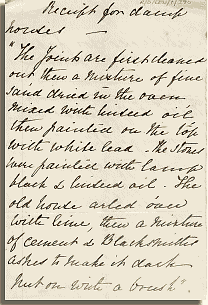 Receipt for damp
houses —
"The Joints are first cleaned
out then a mixture of fine
sand dried in the oven
mixed with linseed oil,
then painted on the top
with white lead - The stones
were painted with lamp
black & linseed oil - The
old house
with lime, then a mixture
of cement & Blacksmiths
ashes to make it dark
Put on with a brush".